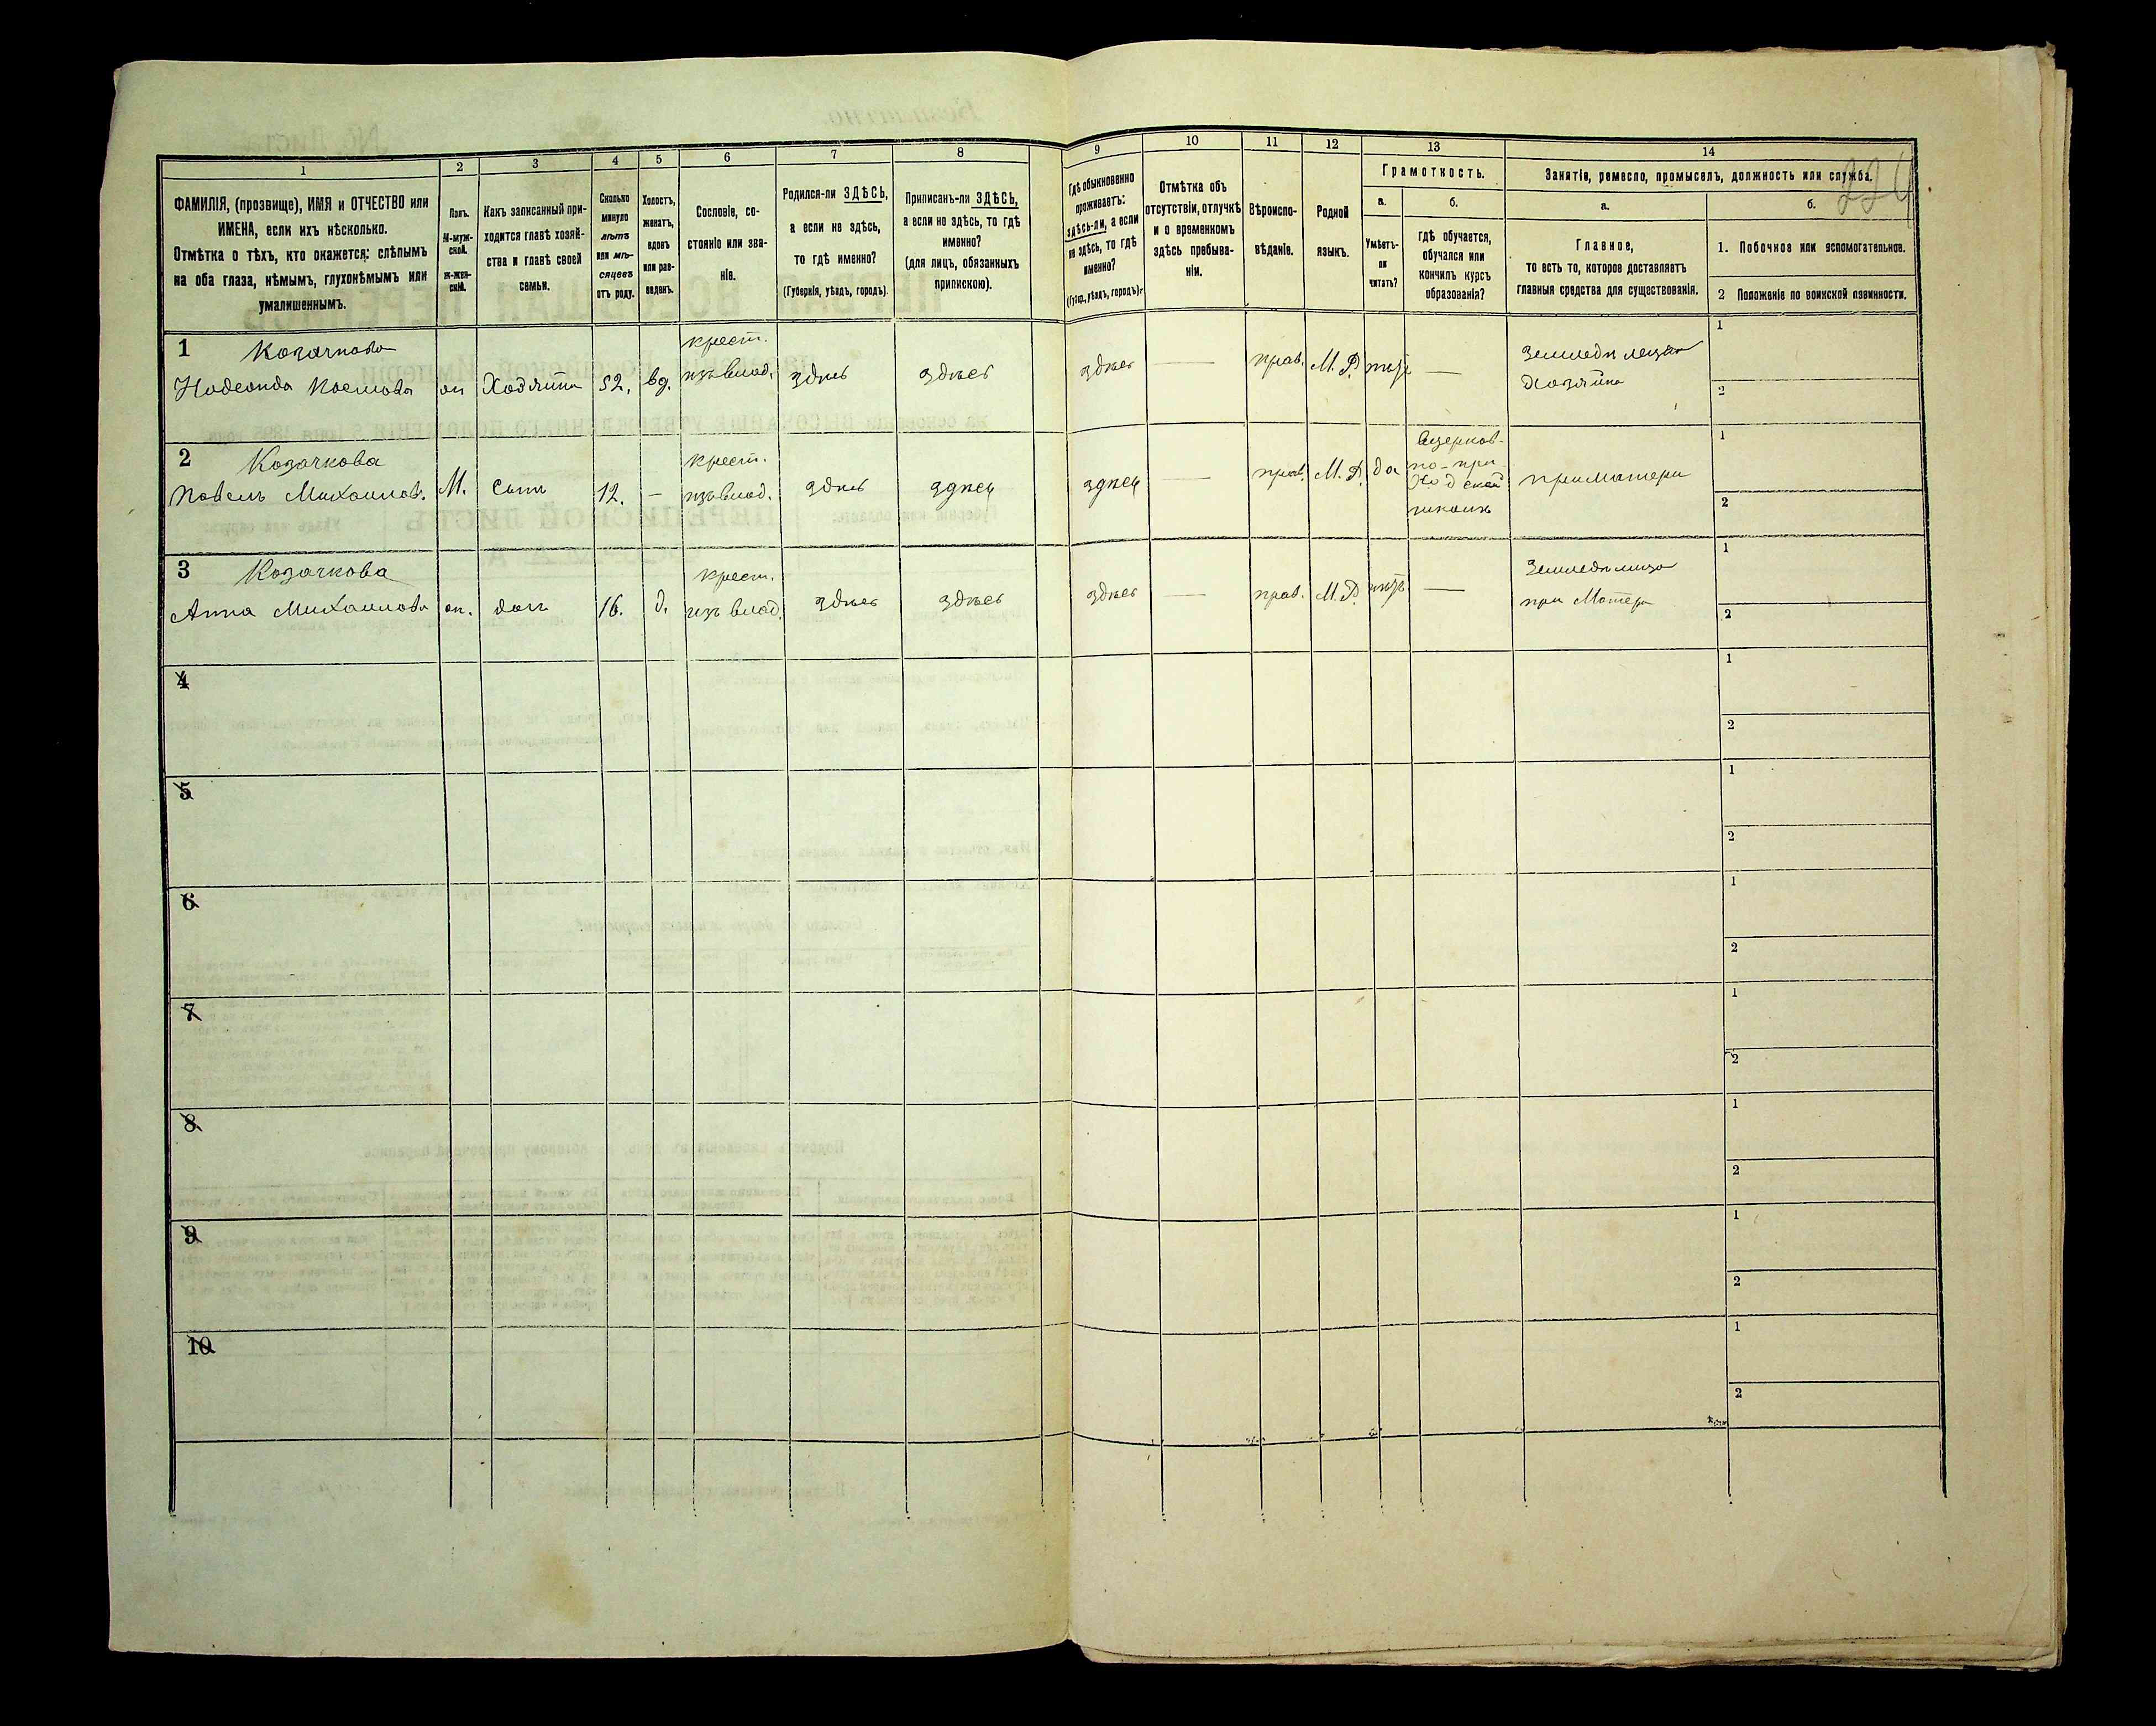 224
1
2
3
4
5
6
7
8
9
10
11
12
13
14
ФАМИЛІЯ, (прозвище), ИМЯ и ОТЧЕСТВО или
ИМЕНА, если ихъ нѣсколько.
Отмѣтка о тѣхъ, кто окажется: слѣпымъ
на оба глаза, нѣмымъ, глухонѣмымъ или
умалишеннымъ.
Полъ.
М-муж-
ской.
Ж-жен-
скій.
Какъ записанный при-
ходится главѣ хозяй-
ства и главѣ своей
семьи.
Сколько
минуло
лѣтъ
или мѣ-
сяцевъ
отъ роду.
Холостъ,
женатъ,
вдовъ
или раз-
веденъ.
Сословіе, со-
стояніе или зва-
ніе.
Родился-ли ЗДѢСЬ,
а если не здѣсь,
то гдѣ именно?
(Губернія, уѣздъ, городъ).
Приписанъ-ли ЗДѢСЬ,
а если не здѣсь, то гдѣ
именно?
(для лицъ, обязанныхъ
припискою).
Гдѣ обыкновенно
проживаетъ:
здѣсь-ли, а если
не здѣсь, то гдѣ
именно?
(Губер., уѣздъ, городъ).
Отмѣтка объ
отсутствіи, отлучкѣ
и о временномъ
здѣсь пребыва-
ніи.
Вѣроиспо-
вѣданіе.
Родной
языкъ.
Грамотность.
а.
б.
Умѣетъ-
ли
читать?
гдѣ обучается,
обучался или
кончилъ курсъ
образованія?
Занятіе, ремесло, промыселъ, должность или служба.
а.
б.
Главное,
то есть то, которое доставляетъ
главныя средства для существованія.
1. Побочное или вспомогательное.
2 Положеніе по воинской повинности.
1 Козачкова
крест.
ж Хозяйка 52. вд. изъ влад. здѣсь здѣсь
здѣсь — прав. М. Р. нѣтъ —
Хозяйка
1
2
2 Козачкова
Павелъ Михаилов. М. сынъ 12. —
крест.
изъ влад. здѣсь здѣсь
здѣсь — прав. М. Р. да
Вцерков-
но-при
ходской
школѣ
при матери
1
2
3 Козачкова
Анна Михаилова ж. доч 16. д.
крест.
изъ влад. здѣсь здѣсь
здѣсь — прав. М. Р. нѣтъ —
при Матери
1
2
4
1
2
5
1
2
6
1
2
7
1
2
8
1
2
9
1
2
10
1
2